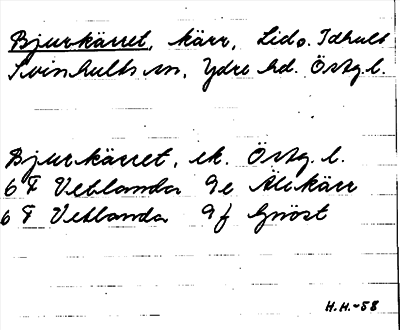 Bjurkärret, kärr, Lido. Idhult
Svinhults sn, Ydre hd. Östg. l.
Bjurkärret, ek. Östg. l.
6 F Vetlanda 9e Älekärr
6 F Vetlanda 9f Gnöst
H.H.-58